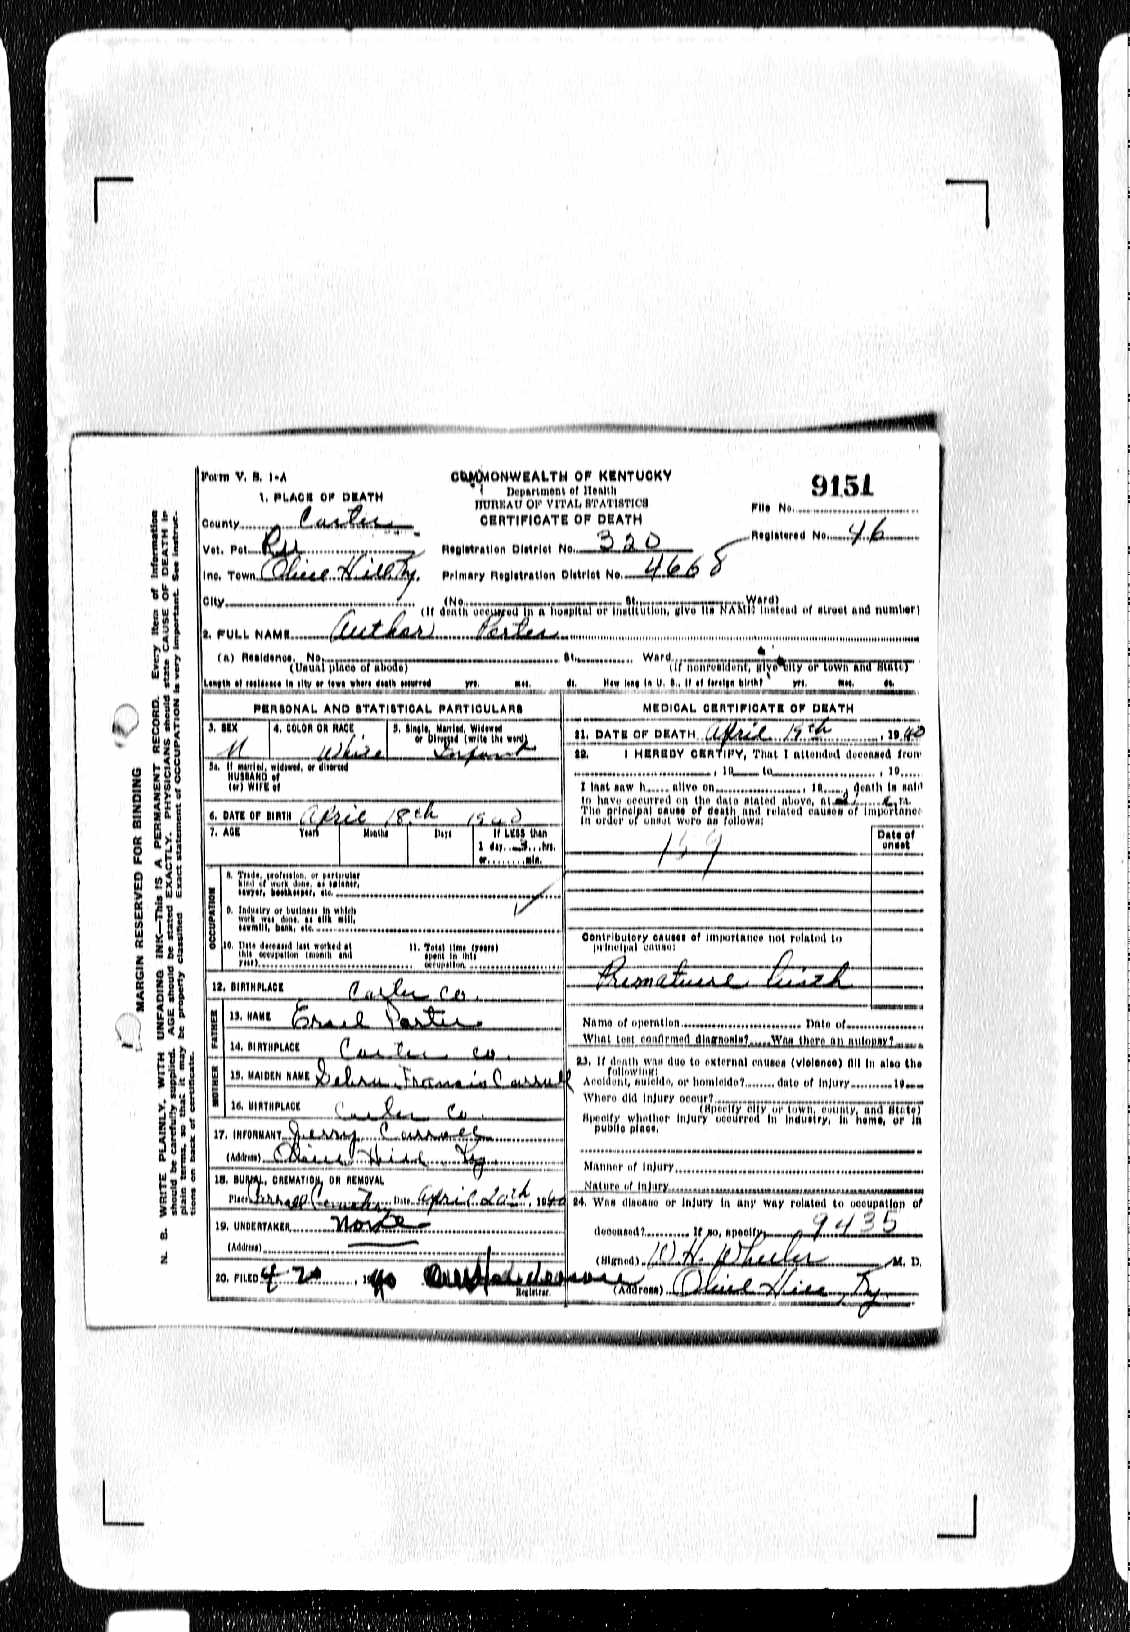 Form V. S. 1-A
COMMONWEALTH OF KENTUCKY
Department of Health
BUREAU OF VITAL STATISTICS
CERTIFICATE OF DEATH
9151
File No.
Registered No. 46
1. PLACE OF DEATH
County Carter
Vot. Pct.
Inc. Town Olive Hill Ky.
City
Registration District No. 320
Primary Registration District No. 4668
(No. St. Ward)
(If death occurred in a hospital or institution, give its NAME instead of street and number)
2. FULL NAME Author Porter
(a) Residence. No. St. Ward
(Usual place of abode) (If nonresident, give city or town and State)
Length of residence in city or town where death occurred yrs. mos. ds. How long in U. S., if of foreign birth? yrs. mos. ds.
PERSONAL AND STATISTICAL PARTICULARS
3. SEX
M
4. COLOR OR RACE
White
5. Single, Married, Widowed
or Divorced (write the word)
Infant
5a. If married, widowed, or divorced
HUSBAND of
(or) WIFE of
6. DATE OF BIRTH April 18th 1940
7. AGE Years Months Days If LESS than
1 day, hrs.
or min.
OCCUPATION
8. Trade, profession, or particular
kind of work done, as spinner,
sawyer, bookkeeper, etc.
9. Industry or business in which
work was done, as silk mill,
sawmill, bank, etc.
10. Date deceased last worked at
this occupation (month and
year)
11. Total time (years)
spent in this
occupation
12. BIRTHPLACE Carter Co.
FATHER
13. NAME Porter
14. BIRTHPLACE Carter Co.
MOTHER
15. MAIDEN NAME Francis Carroll
16. BIRTHPLACE Carter Co.
17. INFORMANT Jerry Carroll
(Address) Olive Hill Ky
18. BURIAL, CREMATION, OR REMOVAL
Place Carroll Cemetery Date April 20th, 1940
19. UNDERTAKER None
(Address)
20. FILED 4-20, 1940
Registrar.
MEDICAL CERTIFICATE OF DEATH
21. DATE OF DEATH April 19th, 1940
22. I HEREBY CERTIFY, That I attended deceased from
, 19 to , 19
I last saw h alive on , 19 , death is said
to have occurred on the date stated above, at m.
The principal cause of death and related causes of importance
in order of onset were as follows:
Date of
onset
159
Contributory causes of importance not related to
principal cause:
Premature birth
Name of operation Date of
What test confirmed diagnosis? Was there an autopsy?
23. If death was due to external causes (violence) fill in also the
following:
Accident, suicide, or homicide? date of injury 19
Where did injury occur?
(Specify city or town, county, and State)
Specify whether injury occurred in industry, in home, or in
public place.
Manner of injury
Nature of injury
24. Was disease or injury in any way related to occupation of
deceased? If so, specify 9435
(Signed) W H. Wheeler M. D.
(Address) Olive Hill, Ky
MARGIN RESERVED FOR BINDING
N. B. WRITE PLAINLY, WITH UNFADING INK—THIS IS A PERMANENT RECORD. Every item of information
should be carefully supplied. AGE should be stated EXACTLY. PHYSICIANS should state CAUSE OF DEATH in
plain terms, so that it may be properly classified. Exact statement of OCCUPATION is very important. See instruc-
tions on back of certificate.